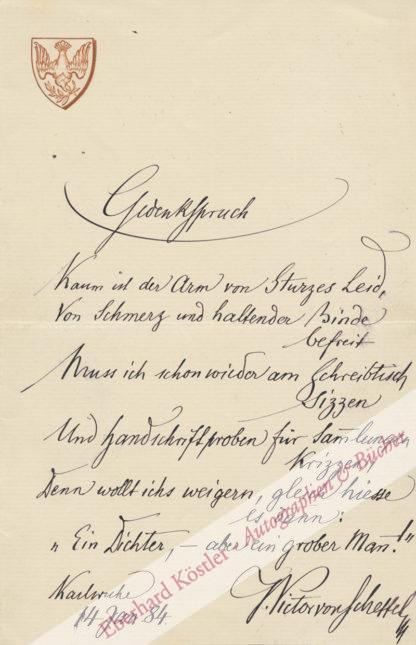 Gedenkspruch
Kaum ist der Arm von Sturzes Leid,
Von Schmerz und haltender Binde
befreit
Muss ich schon wieder am Schreibtisch
Sizzen
Und Handschriftproben für Sammlungen
Krizzen
Denn wollt ichs weigern, gleich hiesse
es dann:
„ Ein Dichter, – aber ein grober Mann!"
Karlsruhe
14 Jan 84.
J. Victor von Scheffel
Eberhard Köstler Autographen & Bücher